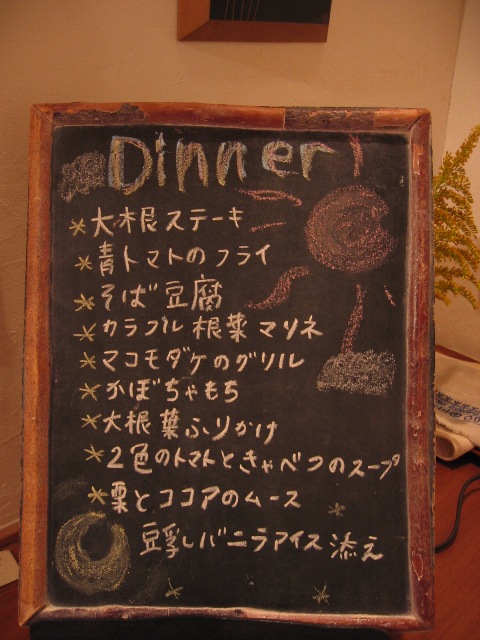 Dinner
* 大根ステーキ
* 青トマトのフライ
* そば豆腐
* カラフル根菜マリネ
* マコモダケのグリル
* かぼちゃもち
* 大根葉ふりかけ
* 2色のトマトときゃべつのスープ
* 栗とココアのムース
豆乳バニラアイス添え